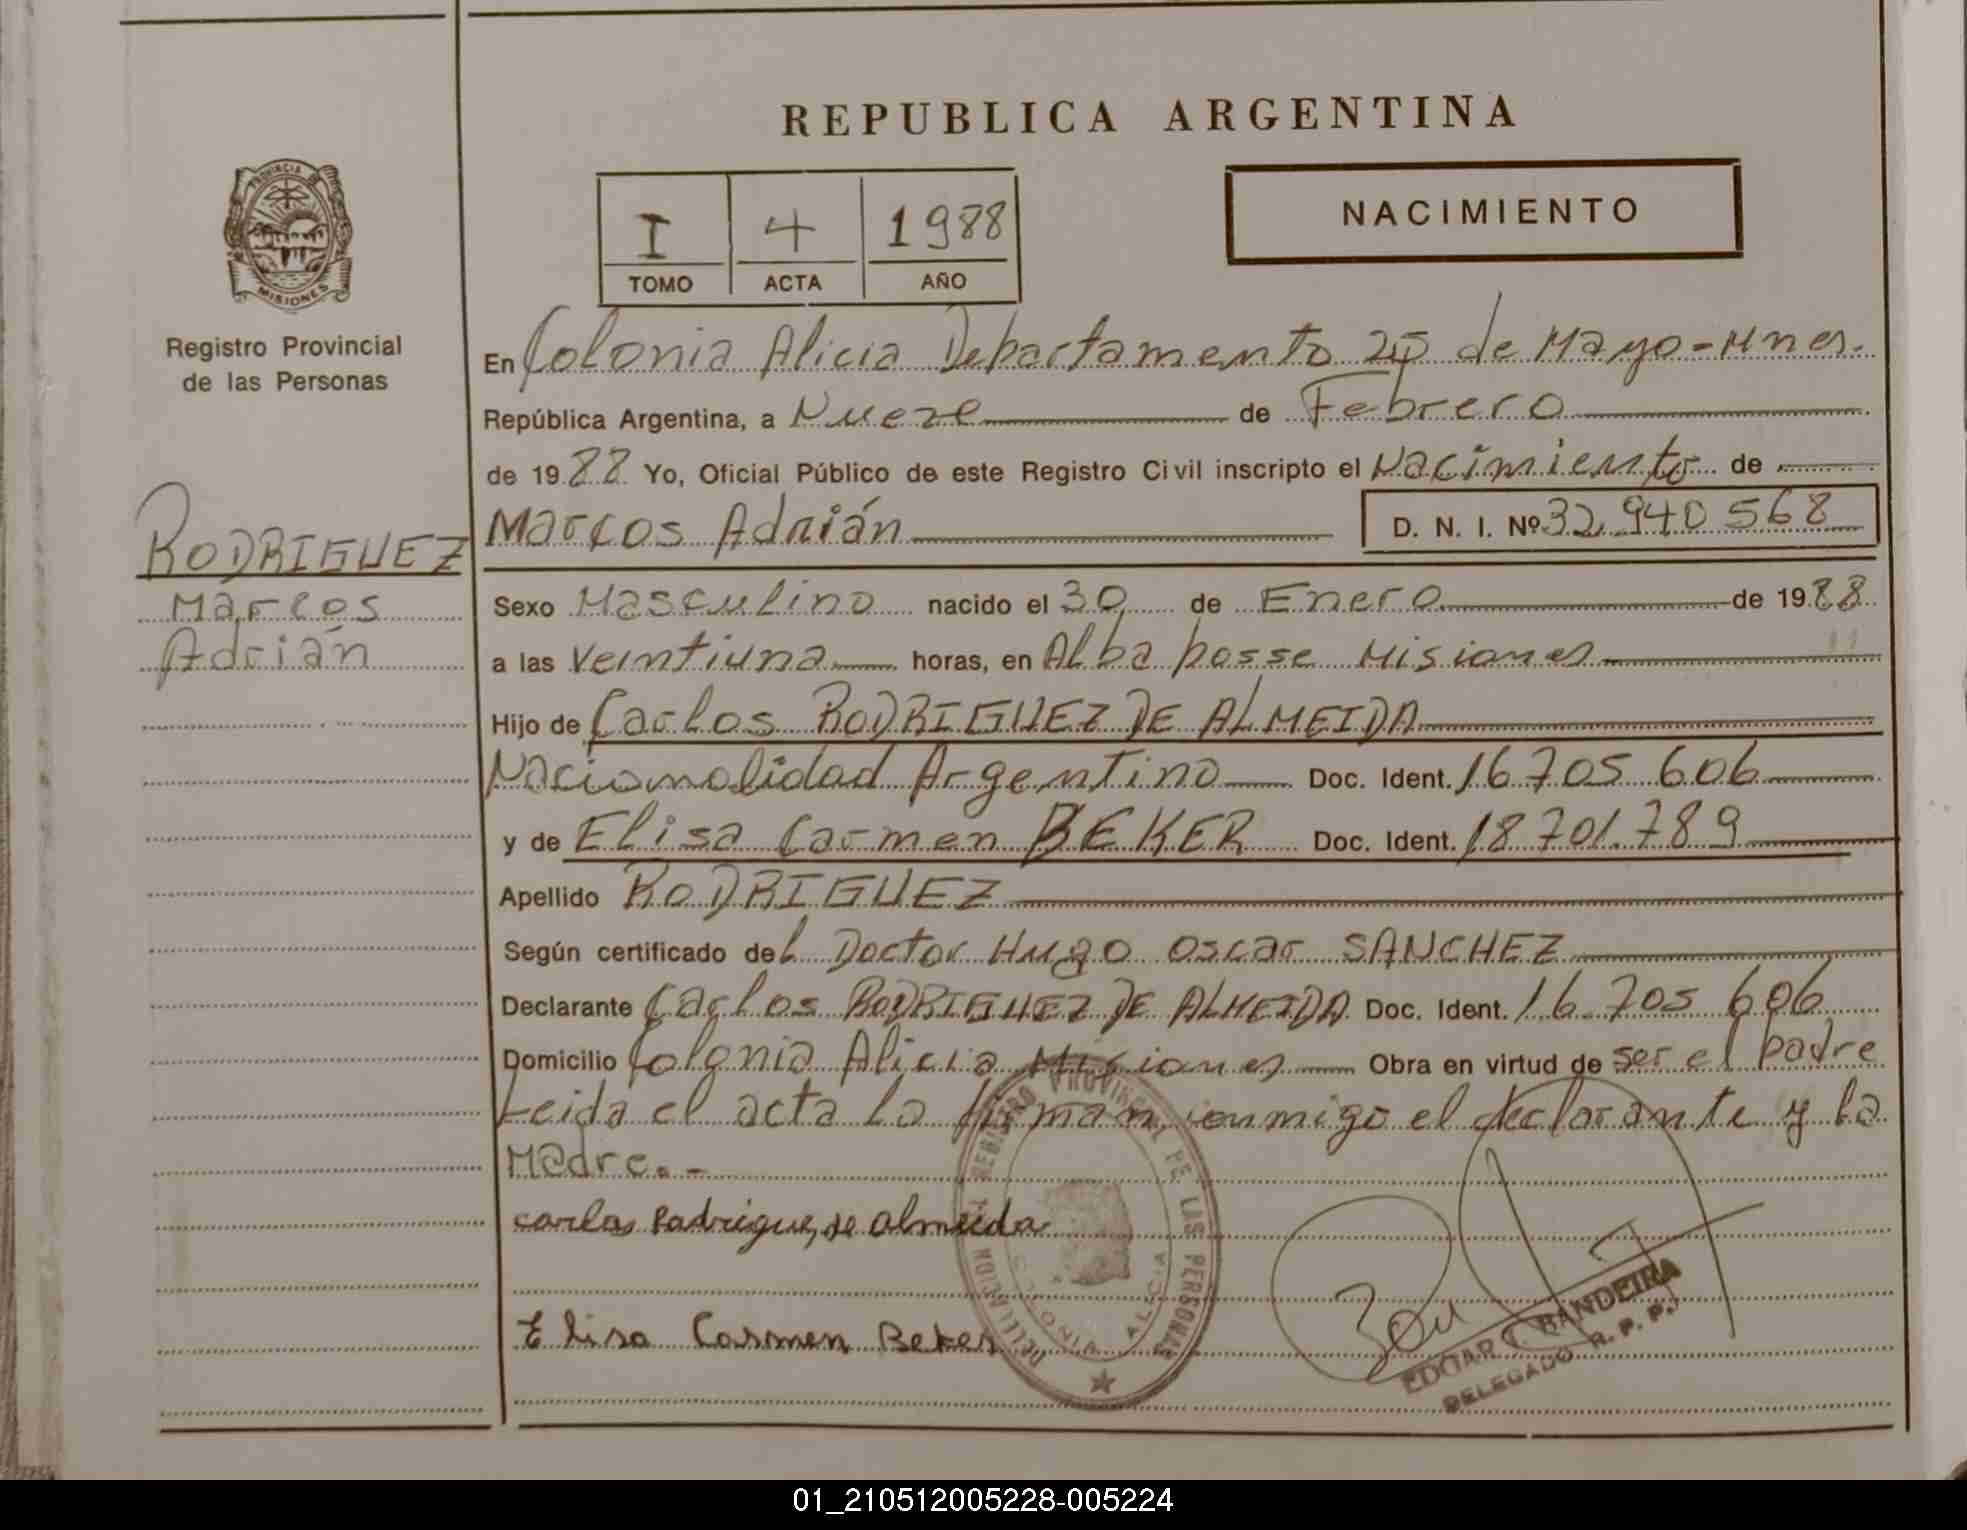 REPUBLICA ARGENTINA
PROVINCIA DE
MISIONES
Registro Provincial
de las Personas
I 4 1988
TOMO ACTA AÑO
NACIMIENTO
RODRIGUEZ
Marcos
Adrián
En Colonia Alicia Departamento 25 de Mayo-Mnes.
República Argentina, a Nueve de Febrero
de 1988 Yo, Oficial Público de este Registro Civil inscripto el Nacimiento de
Marcos Adrián D. N. I. Nº 32.940.568
Sexo Masculino nacido el 30 de Enero de 1988
a las Veintiuna horas, en Alba posse Misiones
Hijo de Carlos RODRIGUEZ DE ALMEIDA
Nacionalidad Argentino Doc. Ident. 16.705.606
y de Elisa Carmen BEKER Doc. Ident. 18.701.789
Apellido RODRIGUEZ
Según certificado del Doctor Hugo Oscar SANCHEZ
Declarante Carlos RODRIGUEZ DE ALMEIDA Doc. Ident. 16.705.606
Domicilio Colonia Alicia Misiones Obra en virtud de ser el padre
Leida el acta la firman conmigo el declarante y la
Madre.-
carlos Rodrigue, de almeida
Elisa Carmen Beker
REGISTRO PROVINCIAL DE LAS PERSONAS
DELEGACION
COLONIA ALICIA
EDGAR C. BANDEIRA
DELEGADO R. P. P.
01_210512005228-005224